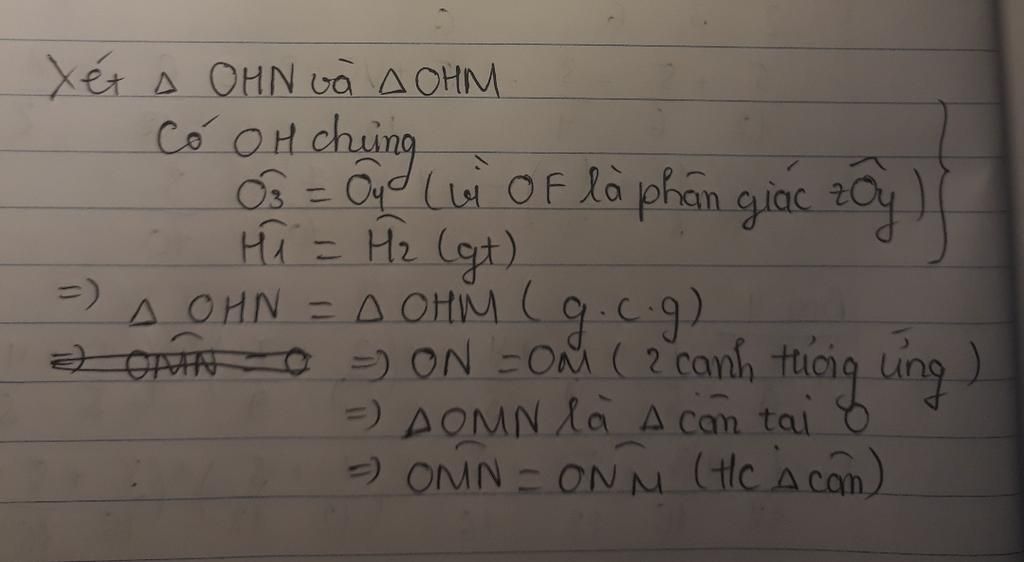 Xét Δ OHN và Δ OHM
Có OH chung
Ô3 = Ô4 (vì OF là phân giác zÔy)
Ĥ1 = Ĥ2 (gt)
=) Δ OHN = Δ OHM (g.c.g)
=) ON = OM (2 cạnh tương ứng)
=) ΔOMN là Δ cân tại O
=) OM̂N = ON̂M (t/c Δ cân)